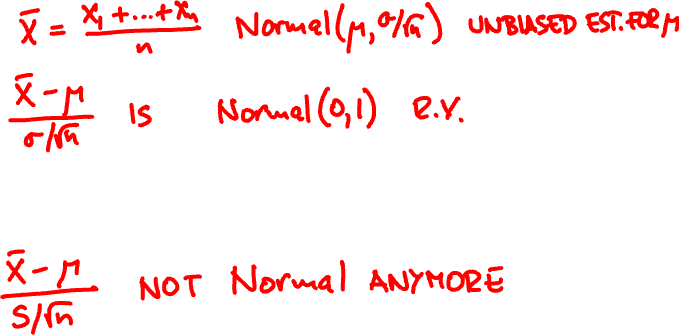 X̄ = (X₁ + ... + Xₙ)/n Normal(μ, σ/√n) UNBIASED EST. FOR μ
(X̄ - μ)/(σ/√n) IS Normal(0,1) R.V.
(X̄ - μ)/(S/√n) NOT Normal ANYMORE